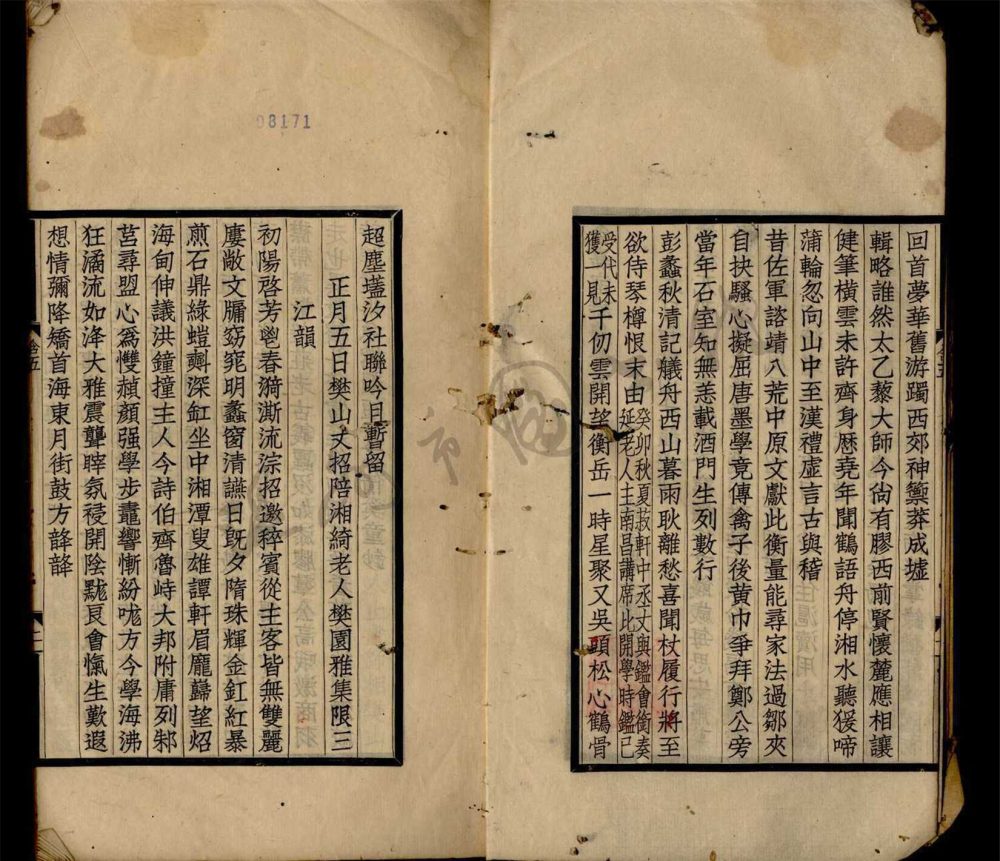 回首夢華舊游躅西郊神籞莽成墟
輯略誰然太乙藜大師今尙有膠西前賢懷麓應相讓
健筆橫雲未許齊身歷堯年聞鶴語舟停湘水聽猨啼
蒲輪忽向山中至漢禮虛言古與稽
昔佐軍諮靖八荒中原文獻此衡量能尋家法過鄒夾
自抉騷心擬屈唐墨學竟傳禽子後黃巾爭拜鄭公旁
當年石室知無恙載酒門生列數行
彭蠡秋清記艤舟西山暮雨耿離愁喜聞杖履行將至
欲侍琴樽恨末由癸卯秋夏菽軒中丞丈與鑑會銜奏
延老人主南昌講席比開學時鑑已
受代未
獲一見千仞雲開望衡岳一時星聚又吳頭松心鶴骨
超塵壒汐社聯吟日暫留
正月五日樊山丈招陪湘綺老人樊園雅集限三
江韻
初陽啓芳鬯春漪澌流淙招邀稡賓從主客皆無雙麗
廔敞文牖窈窕明蠡窗清讌日旣夕隋珠輝金釭紅暴
煎石鼎綠螘𣂏深缸坐中湘潭叟雄譚軒眉厖巋望炤
海甸伸議洪鐘撞主人今詩伯齊魯峙大邦附庸列邾
莒尋盟心爲雙赬顏强學步鼃響慚紛哤方今學海沸
狂潏流如洚大雅震聾聹氛祲開陰䵝良會愾生歎遐
想情彌降矯首海東月街鼓方韸韸
08171